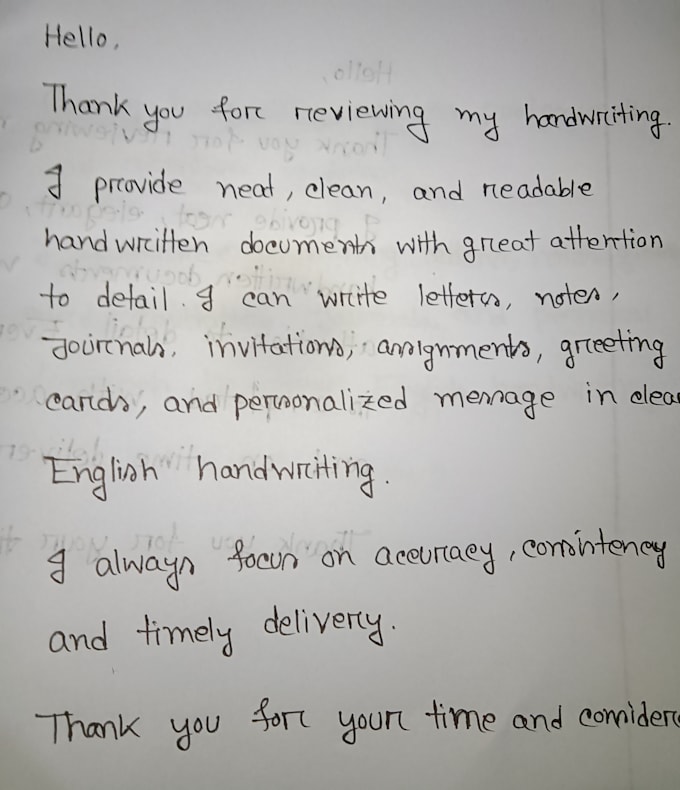 Hello,
Thank you for reviewing my handwriting.
I provide neat, clean, and readable
handwritten documents with great attention
to detail. I can write letters, notes,
Journals, invitations, assignments, greeting
cards, and personalized message in clea
English handwriting.
I always focus on accuracy, consistency
and timely delivery.
Thank you for your time and consider